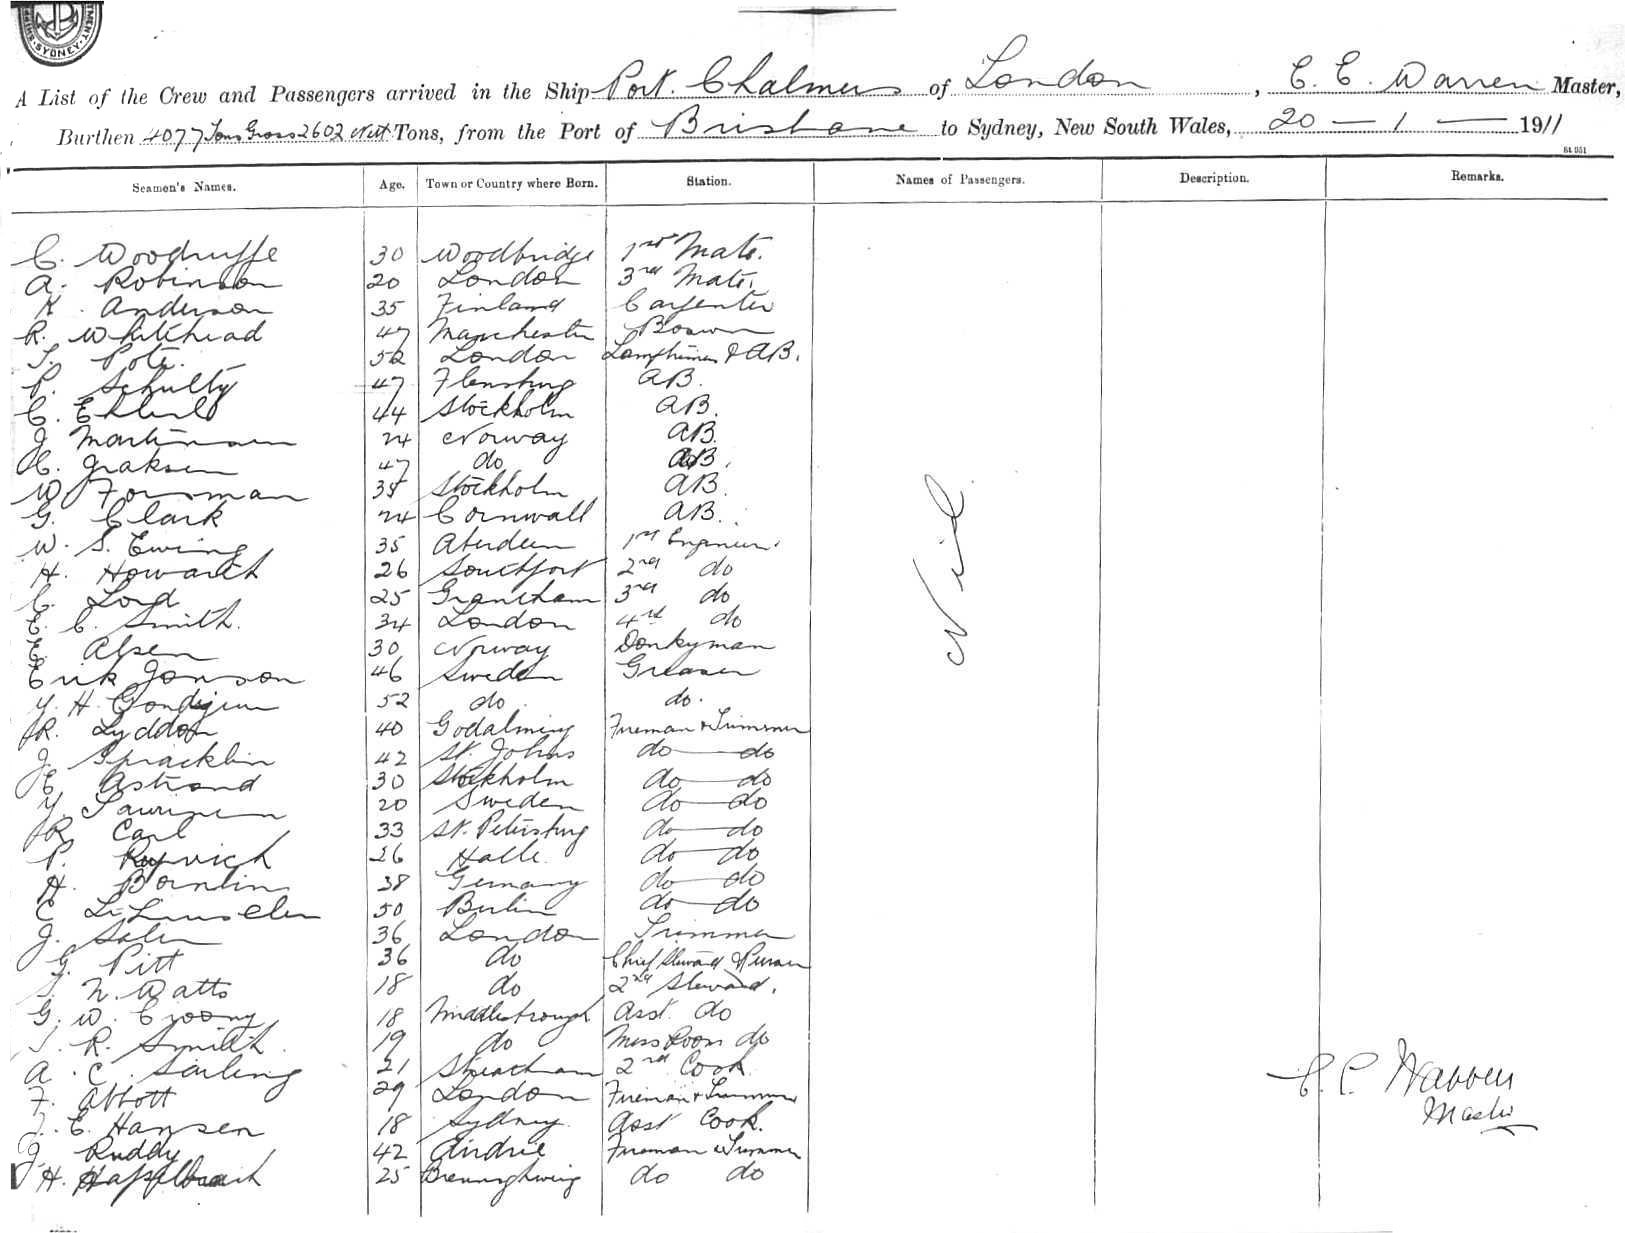 SYDNEY
A List of the Crew and Passengers arrived in the Ship Port Chalmers of London, C. E. Warren Master,
Burthen 4077 Tons Gross 2602 Nett Tons, from the Port of Brisbane to Sydney, New South Wales, 20 - 1 - 1911
Seamen's Names. Age. Town or Country where Born. Station. Names of Passengers. Description. Remarks.
C. Woodruffe 30 Woodbridge 1st Mate.
A. Robinson 20 London 3rd Mate.
K. Anderson 35 Finland Carpenter
R. Whitehead 47 Manchester Boswn
T. Pote. 52 London Lamptrimmer & AB.
P. Schultz 47 Flensburg AB.
C. 44 Stockholm AB.
J. Martinsen 24 Norway AB.
47 do AB.
W Forsman 35 Stockholm AB.
G. Clark 24 Cornwall AB.
W. S. Ewing 35 Aberdeen 1st Engineer.
H. Howarth 26 Southport 2nd do
C. Lord 25 Grantham 3rd do
E. C. Smith. 34 London 4th do
E. Alsen 30 Norway Donkyman
Erik Jonson 46 Sweden Greaser
H. 52 do do.
R. Lyddon 40 Godalming Fireman & Trimmer
J. Spracklin 42 St. Johns do do
E. Astrand 30 Stockholm do do
20 Sweden do do
R. Carl 33 St. Petersburg do do
P. 26 Halle. do do
H. 38 Germany do do
C 50 Berlin do do
J. 36 London Trimmer
G. Pitt 36 do Chief Steward & Purser
N. Watts 18 do 2nd Steward.
G. W. 18 Middlesbrough Asst. do
R. Smith. 19 do Mess Room do
A. C. 21 Streatham 2nd Cook
F. Abbott 29 London Fireman & Trimmer
E. Hansen 18 Sydney. Asst Cook.
J. Ruddy 42 Airdrie Fireman & Trimmer
H. 25 do do
Nil
C. E. Warren
Master